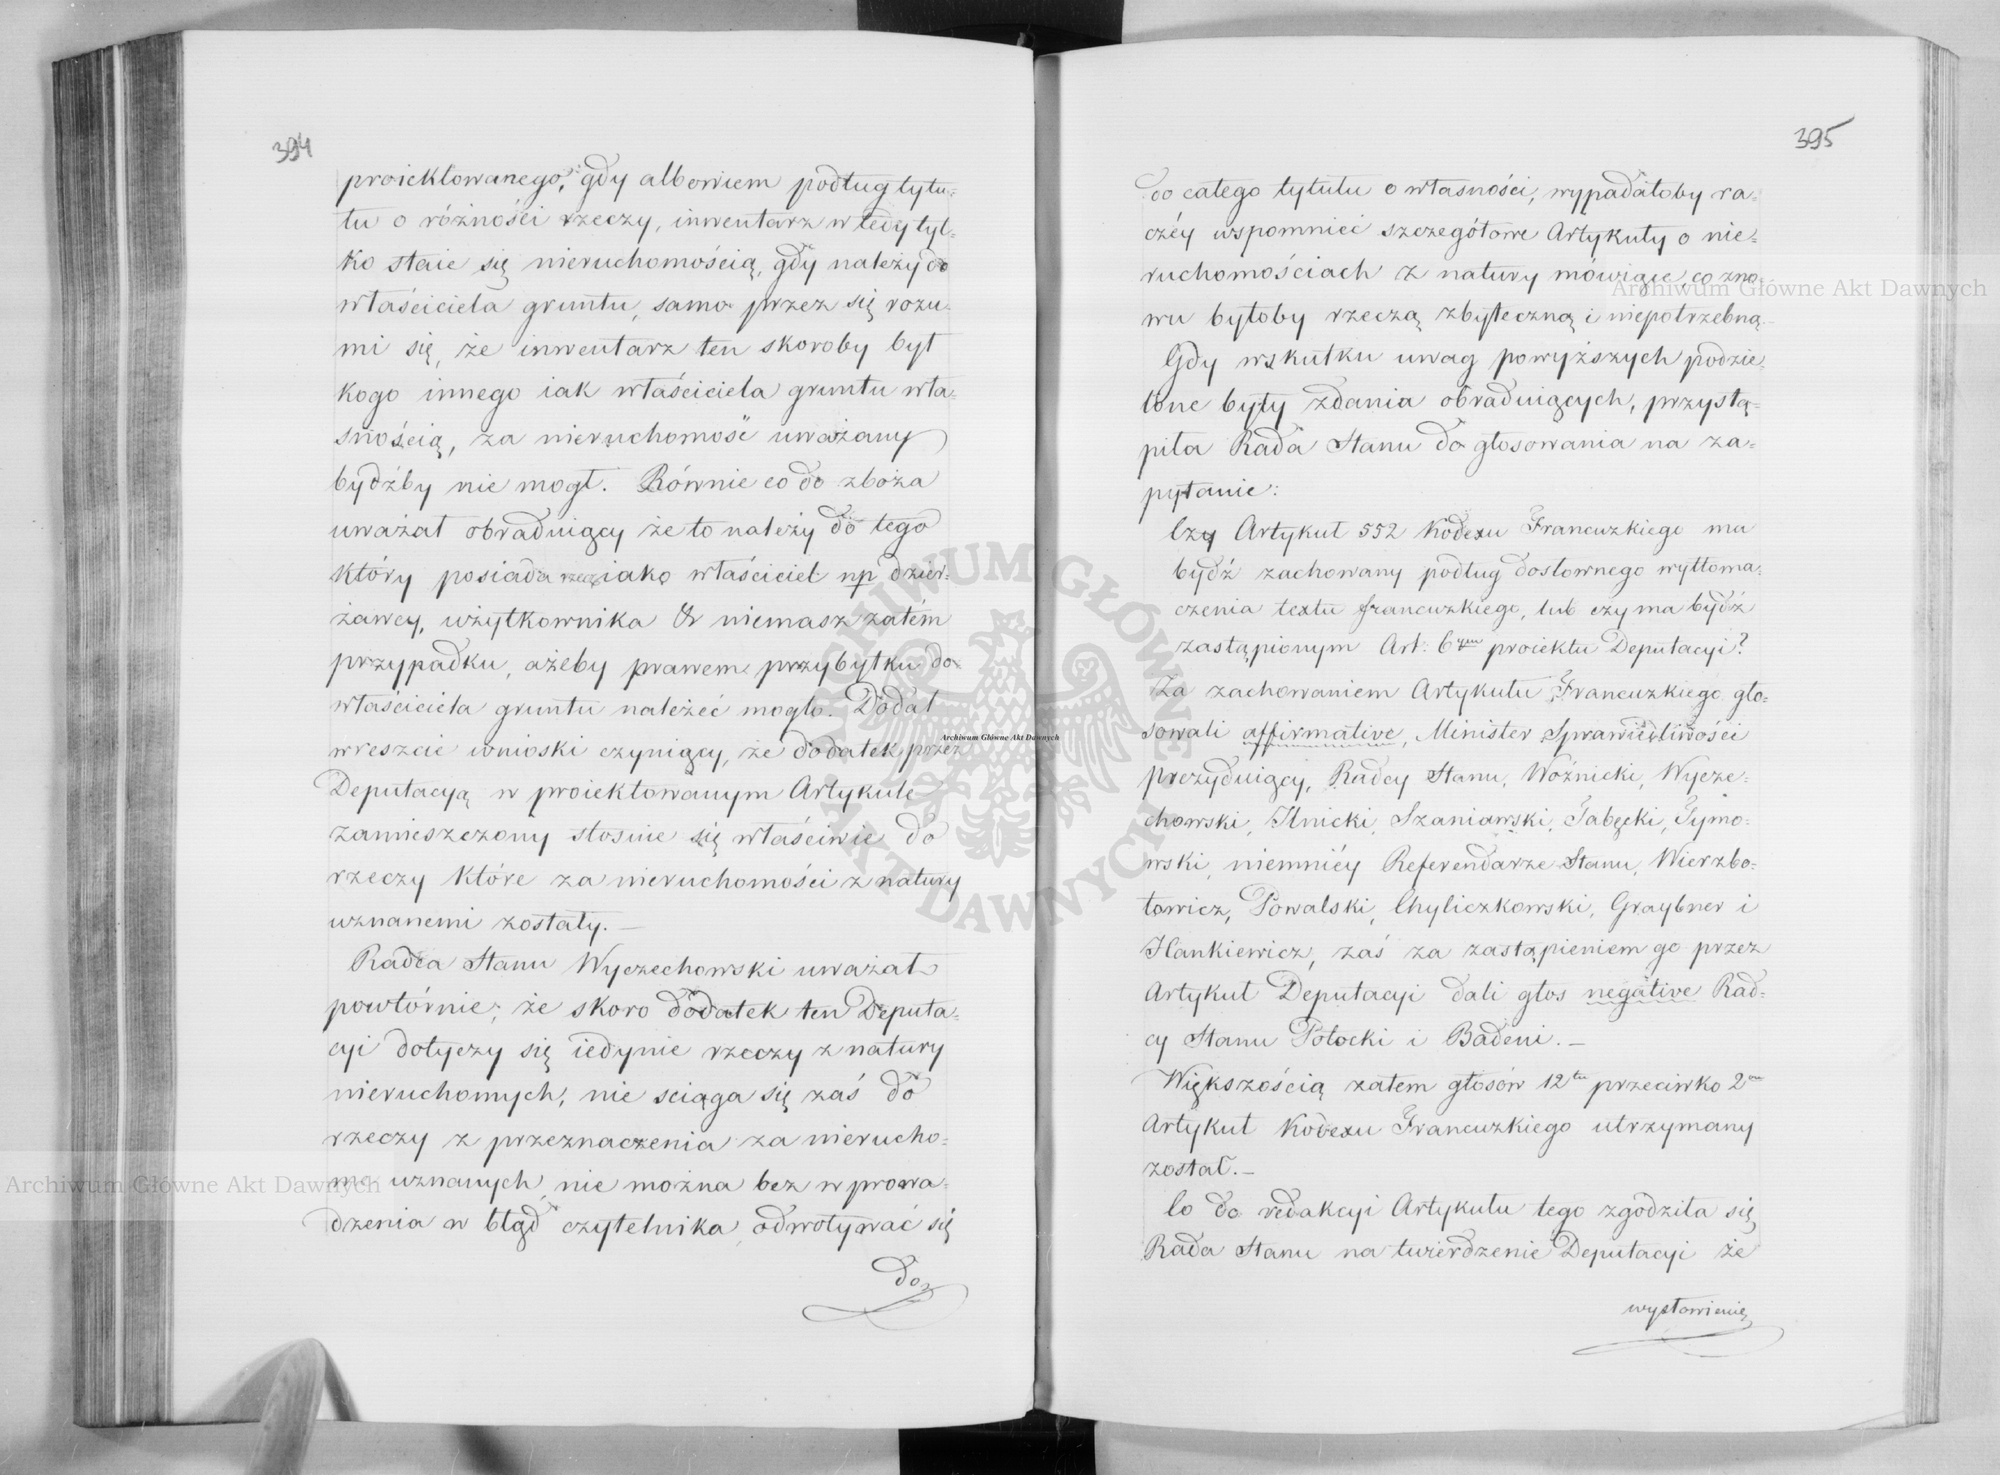 394
proiektowanego, gdy albowiem podług tytu-
łu o różności rzeczy, inwentarz wtedy tyl-
ko staie się nieruchomością, gdy należy do
właściciela gruntu, samo przez się rozu-
mi się, że inwentarz ten skoroby był
kogo innego iak właściciela gruntu wła-
snością, za nieruchomość uważany
bydźby nie mógł. Równie co do zboża
uważał obraduiący że to należy do tego
który posiada rzecz iako właściciel np dzier-
żawcy, użytkownika & niemasz zatém
przypadku, ażeby prawem przybytku do
właściciela gruntu należéć mogło. Dodał
wreszcie wnioski czyniący, że dodatek przez
Deputacyą w proiektowanym Artykule
zamieszczony stosuie się właściwie do
rzeczy które za nieruchomości z natury
uznanemi zostały. —
Radca Stanu Wyczechowski uważał
powtórnie, że skoro dodatek ten Deputa-
cyi dotyczy się iedynie rzeczy z natury
nieruchomych, nie sciąga się zaś do
rzeczy z przeznaczenia za nierucho-
me uznanych, nie można bez wprowa-
dzenia w błąd czytelnika, odwoływać się
do
395
do całego tytułu o własności, wypadałoby ra-
czéy wspomnieć szczegółowe Artykuły o nie-
ruchomościach z natury mówiące, co zno-
wu byłoby rzeczą zbyteczną i niepotrzebną.
Gdy wskutku uwag powyższych podzie-
lone były zdania obraduiących, przystą-
piła Rada Stanu do głosowania na za-
pytanie:
Czy Artykuł 552 Kodexu Francuzkiego ma
bydź zachowany podług dosłownego wytłoma-
czenia textu francuzkiego, lub czy ma bydź
zastąpionym Art: 6ym proiektu Deputacyi?
Za zachowaniem Artykułu Francuzkiego gło-
sowali affirmative, Minister Sprawiedliwości
prezyduiący, Radcy Stanu, Woźnicki, Wycze-
chowski, Ilnicki, Szaniawski, Gabęcki, Tymo-
wski, niemniéy Referendarze Stanu, Wierzbo-
łowicz, Powalski, Chyliczkowski, Graybner i
Hankiewicz, zaś za zastąpieniem go przez
Artykuł Deputacyi dali głos negative Rad-
cy Stanu Potocki i Badeni. —
Większością zatem głosów 12tu przeciwko 2om
Artykuł Kodexu Francuzkiego utrzymany
został. —
Co do redakcyi Artykułu tego zgodziła się
Rada Stanu na twierdzenie Deputacyi że
wysłowienie
Archiwum Główne Akt Dawnych
Archiwum Główne Akt Dawnych
Archiwum Główne Akt Dawnych
ARCHIWUM GŁÓWNE AKT DAWNYCH